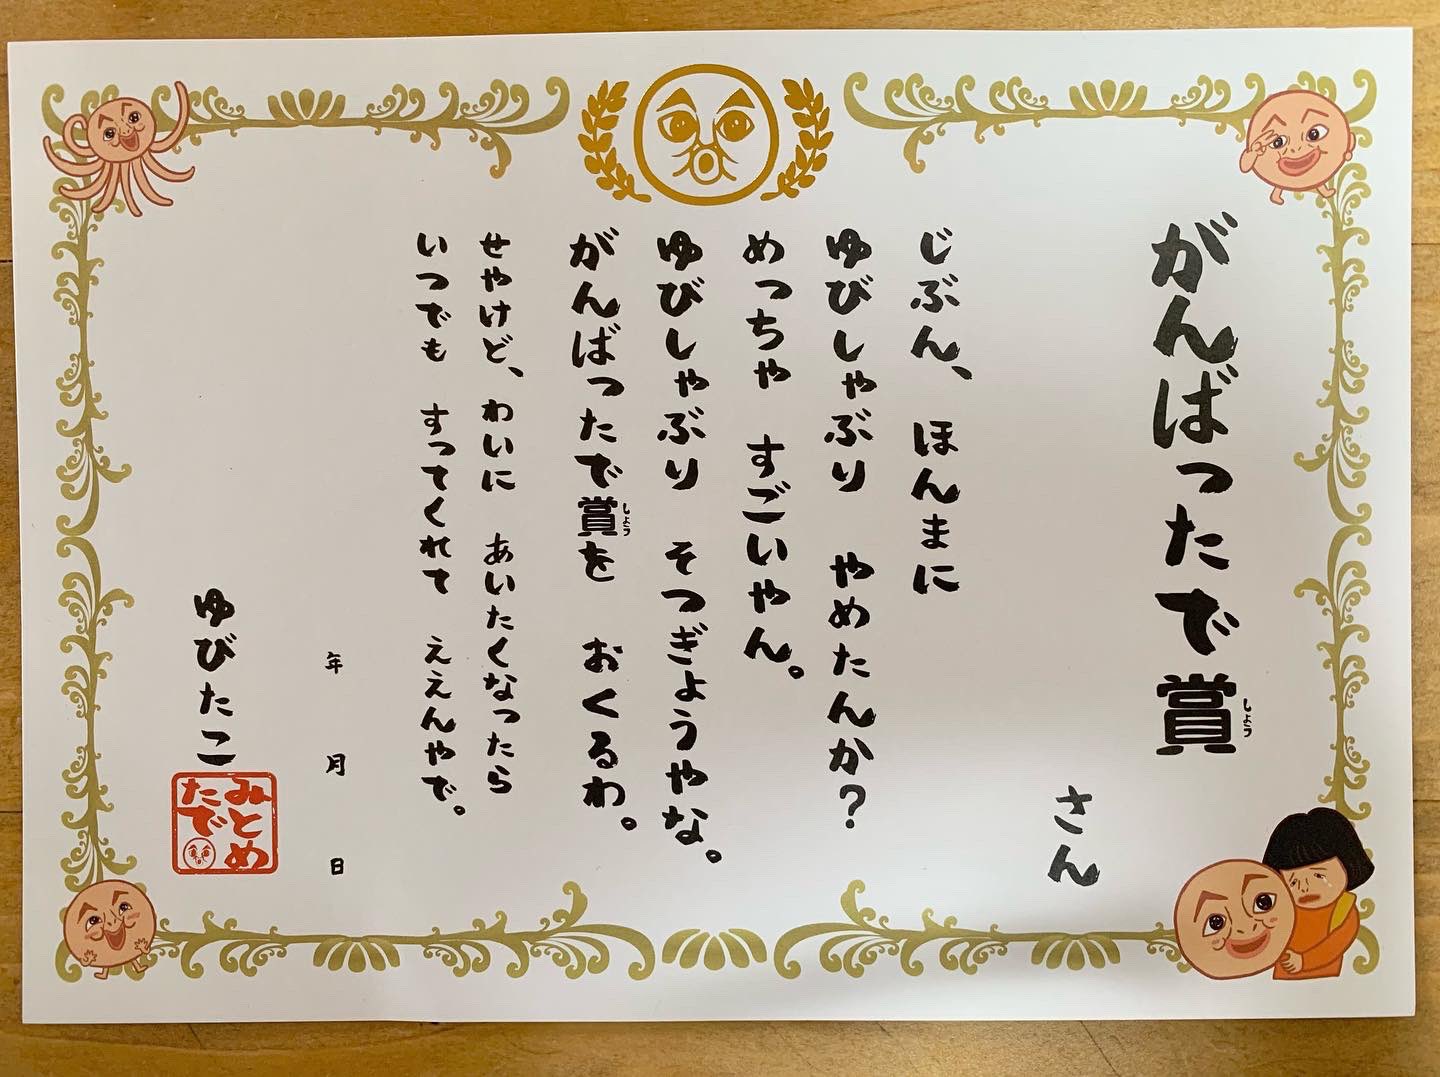 がんばったで賞
しょう
さん
じぶん、ほんまに
ゆびしゃぶり　やめたんか?
めっちゃ　すごいやん。
ゆびしゃぶり　そつぎょうやな。
がんばったで賞を　おくるわ。
しょう
せやけど、わいに　あいたくなったら
いつでも　すってくれて　ええんやで。
年　月　日
ゆびたこ
みとめ
たで